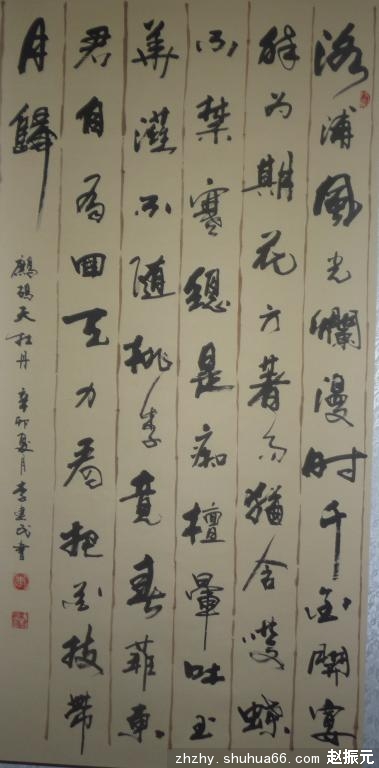 洛浦風光爛漫时千金開宴
醉为期花方著雨猶含笑蝶
不禁寒總是痴檀暈吐玉
華滋不随桃李竟春菲東
君自有回天力看把花枝帶
月歸
鷓鴣天 牡丹 辛卯夏月李建書
zhzhy.shuhua66.com 赵振元